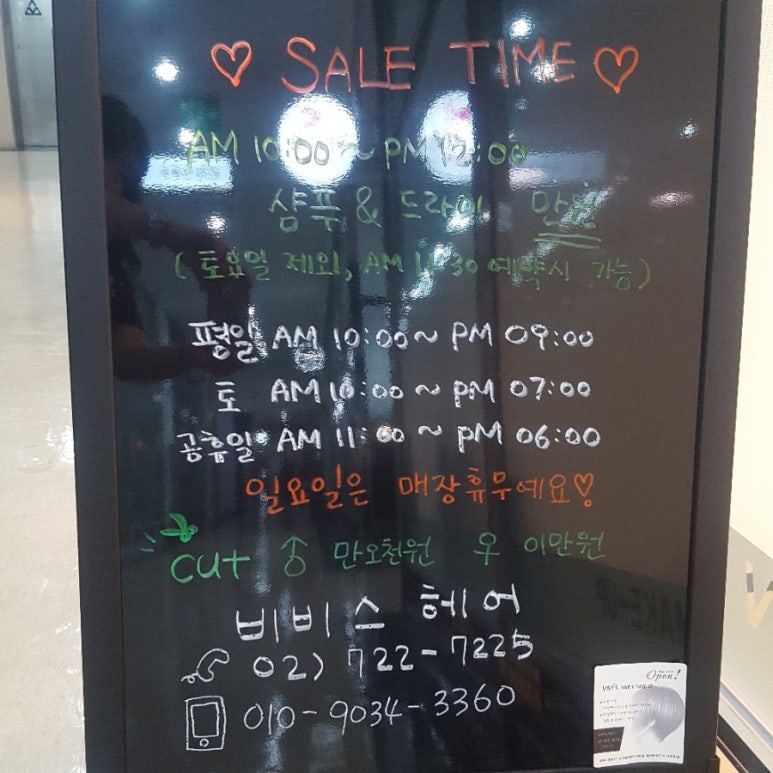 ♡ SALE TIME ♡
AM 10:00 ~ PM 12:00
샴푸 & 드라이 만원
(토요일 제외, AM 11:30 예약시 가능)
평일 AM 10:00 ~ PM 09:00
토 AM 10:00 ~ PM 07:00
공휴일 AM 11:00 ~ PM 06:00
일요일은 매장휴무예요♡
cut ♂ 만오천원 ♀ 이만원
비비스 헤어
02) 722-7225
010-9034-3360
Open!